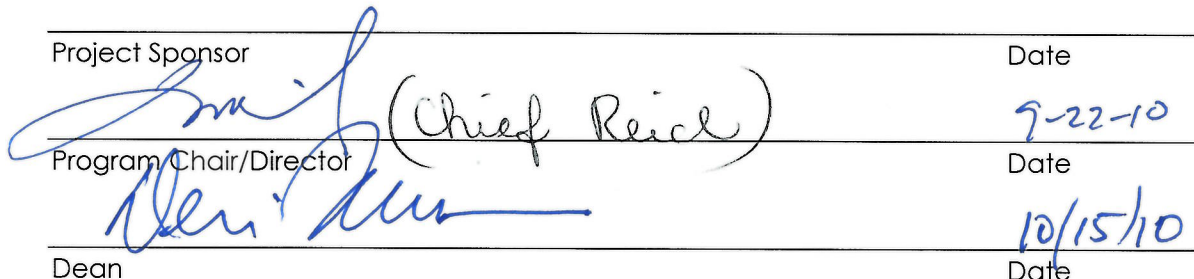 Project Sponsor Date
(Chief Reid) 9-22-10
Program Chair/Director Date
10/15/10
Dean Date